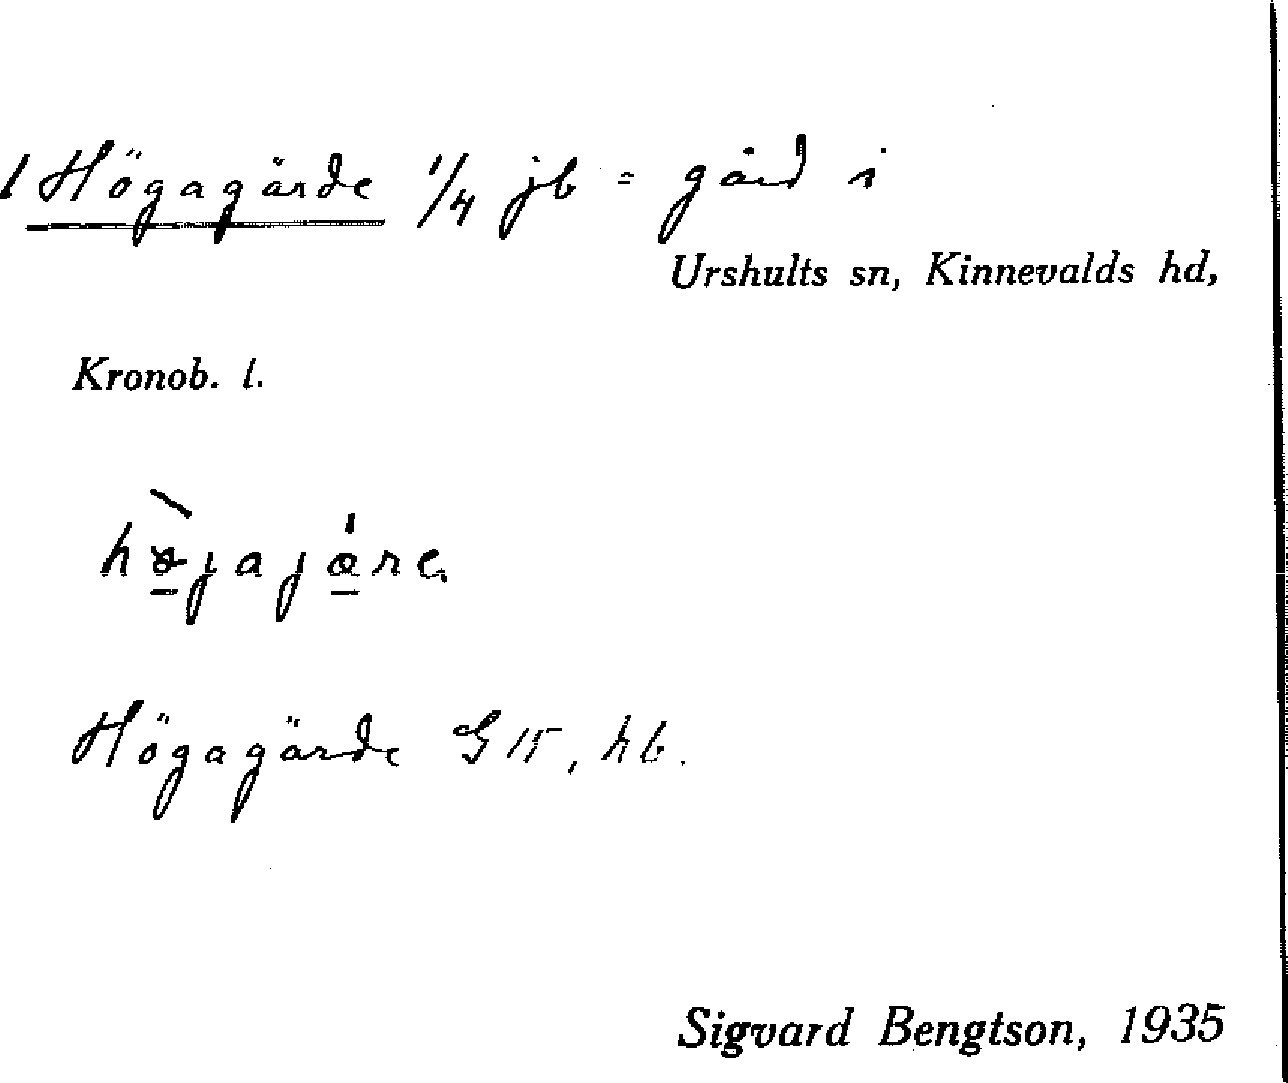 1 Högagärde 1/4 jb = gård i
Urshults sn, Kinnevalds hd,
Kronob. l.
hø̀jajǽre
Högagärde G 15, hb.
Sigvard Bengtson, 1935